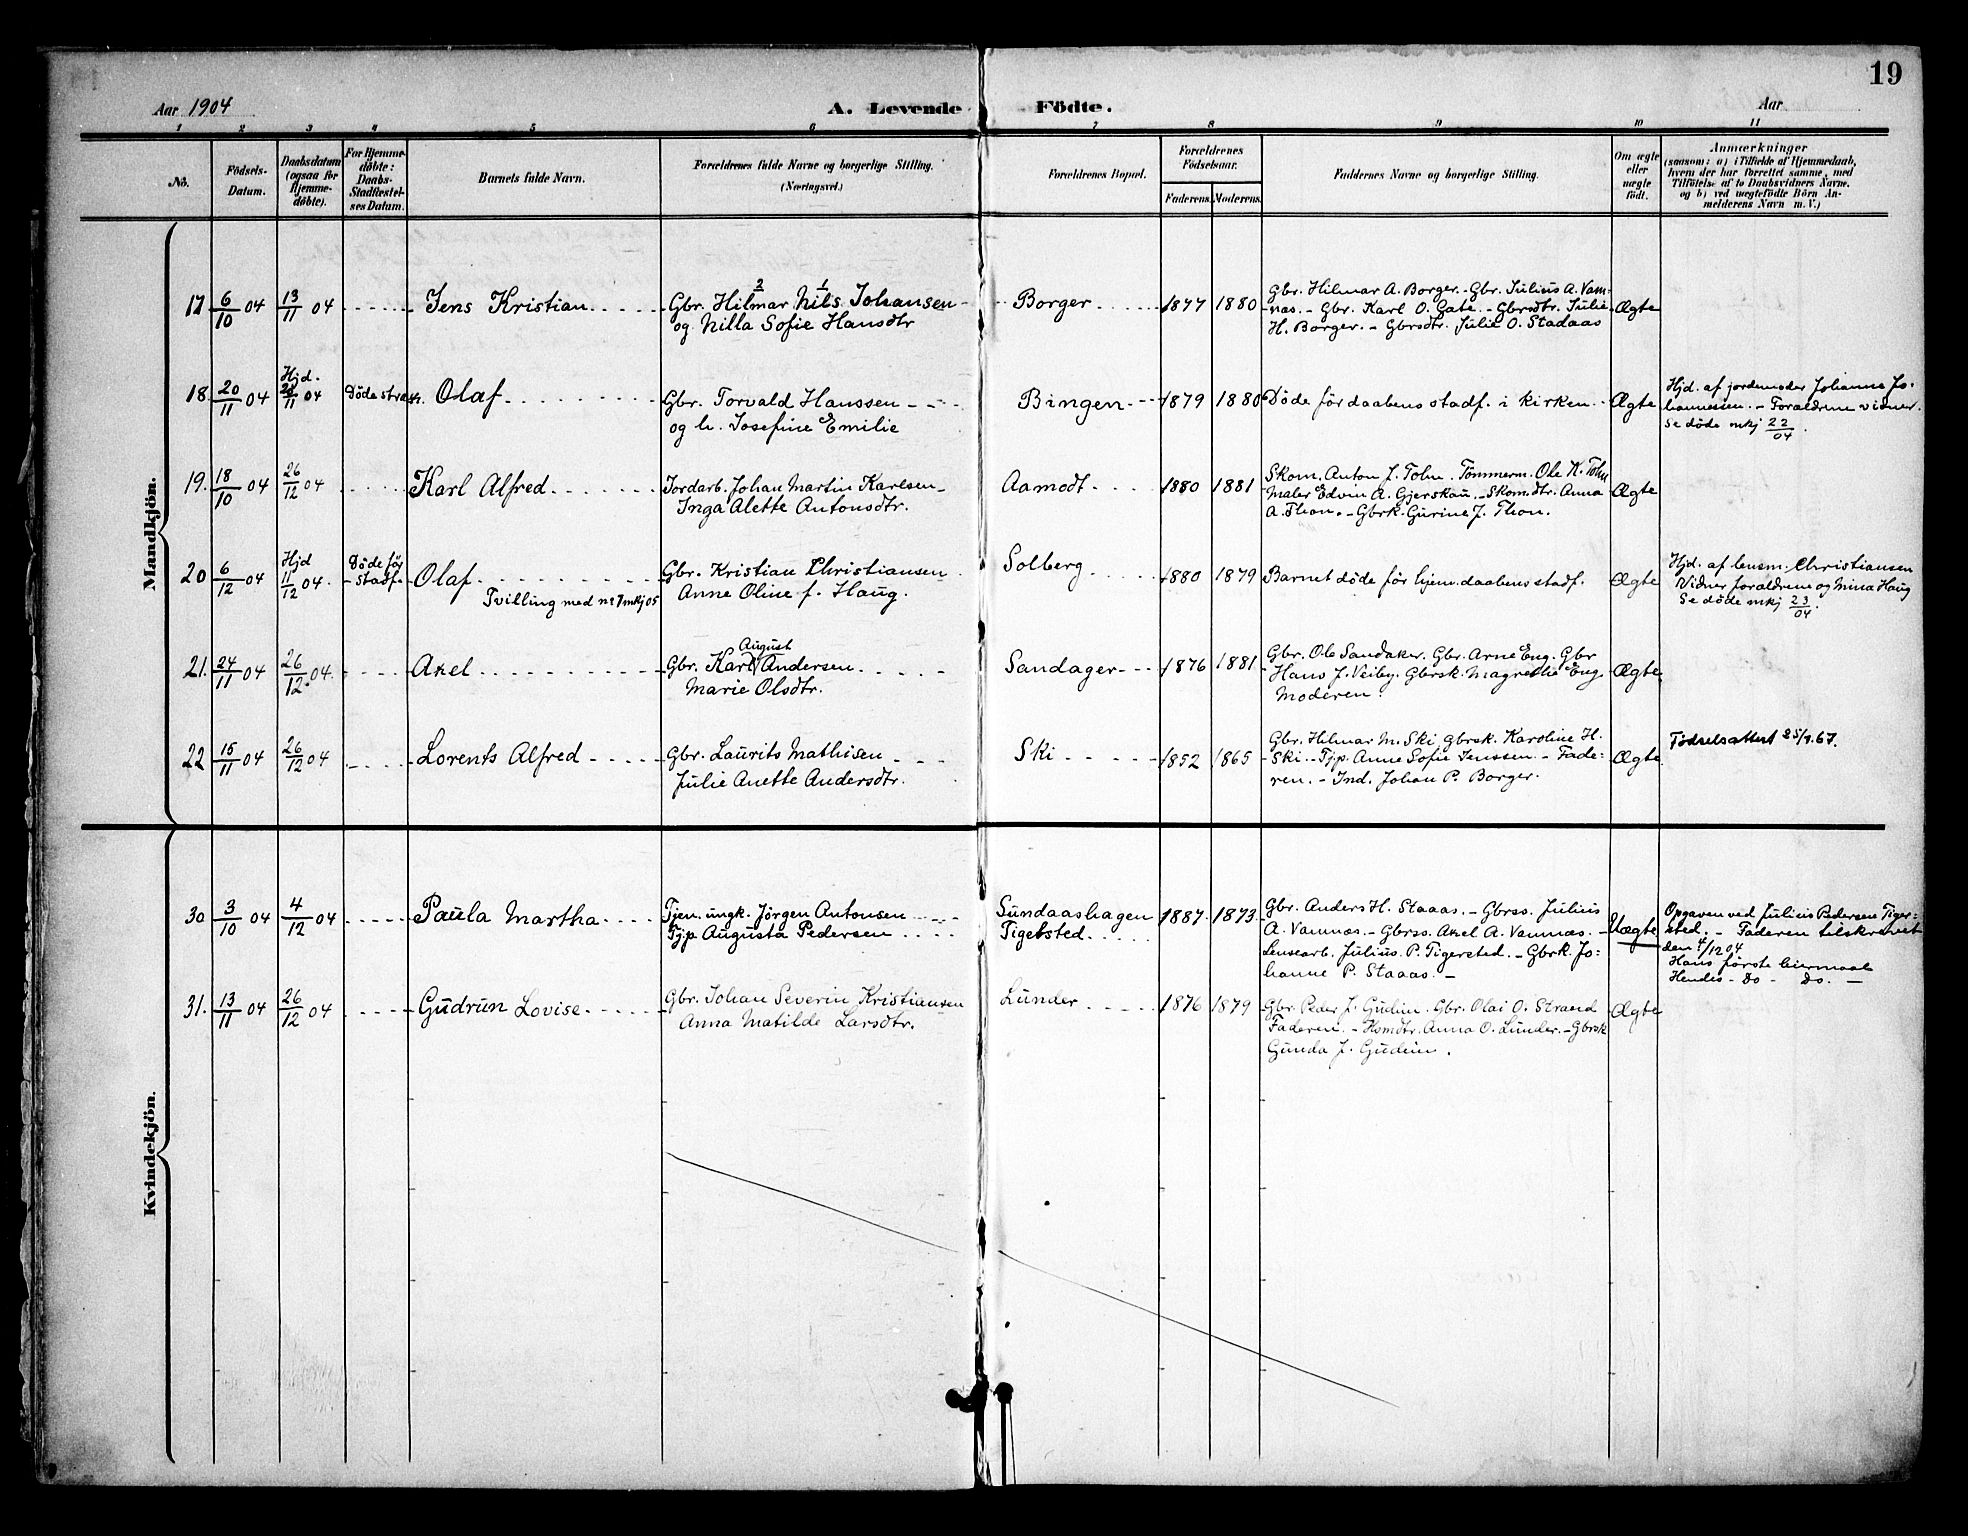 19
Aar 1904
A. Levende Födte.
Aar
1 2 3 4 5 6 7 8 9 10 11
No.
Födsels-
Datum.
Daabsdatum
(ogsaa for
Hjemme-
døbte).
For Hjemme-
døbte:
Daabs-
Stadfæstel-
ses Datum.
Barnets fulde Navn.
Forældrenes fulde Navne og borgerlige Stilling.
(Næringsvei.)
Forældrenes Bopæl.
Forældrenes
Födselsaar.
Faderens. Moderens.
Faddernes Navne og borgerlige Stilling.
Om ægte
eller
uægte
födt.
Anmærkninger
(saasom: a) i Tilfælde af Hjemmedaab,
hvem der har forrettet samme, med
Tilføielse af to Daabsvidners Navne.
og b) ved uægtefödte Börn An-
melderens Navn m. V.)
Mandkjön.
17 6/10 04 13/11 04 Jens Kristian Gbr. Hilmar 2 Nils 1 Johansen
og Nilla Sofie Hansdtr
Borger 1877 1880
Gbr. Hilmar A. Borger. - Gbr. Julius A. Vam-
næs. - Gbr. Karl O. Gate. - Gbrsdtr. Julie
H. Borger. - Gbrsdtr. Julie O. Stadaas
Ægte
18. 20/11 04 Hjd. 20/11 04 Döde strax. Olaf Gbr. Torvald Hanssen
og h. Josefine Emilie
Bingen 1879 1880 Döde för daabens stadf. i kirken. Ægte
Hjd. af jordemoder Johanne Jo-
hannessen. - Forældrene vidner.
Se döde mkj 22/04.
19. 18/10 04 26/12 04 Karl Alfred Jordarb. Johan Martin Karlsen
Inga Alette Antonsdtr.
Aamodt 1880 1881
Skom. Anton J. Tohn. Tömmerm. Ole K. Tohn
Maler Edvin A. Gjerskau. - Skom.dtr. Anna
A. Thon. - Gbrk. Gurine J. Thon.
Ægte
20 6/12 04 Hjd 11/12 04. Döde för stadf. Olaf
Tvilling med nr 7 mkj 05
Gbr. Kristian Christiansen
Anne Oline f. Haug.
Solberg 1880 1879 Barnet döde för hjem.daabens stadf. Ægte
Hjd. af lensm. Christiansen
Vidner forældrene og Mina Haug
Se döde mkj 23/04.
21. 24/11 04 26/12 04. Axel Gbr. Karl August Andersen
Marie Olsdtr.
Sandager 1876 1881
Gbr. Ole Sandaker. Gbr. Arne Eng. Gbr
Hans J. Veiby. Gbrsk. Magrethe Eng.
Moderen.
Ægte
22 15/11 04 26/12 04 Lorents Alfred Gbr. Laurits Mathisen
Julie Anette Andersdtr.
Ski 1852 1865
Gbr. Hilmar M. Ski, gbrsk. Karoline H.
Ski. - Tjp. Anne Sofie Jenssen. - Fade-
ren. - Ind. Johan P. Borger.
Ægte
Födselsattest 25/1.67.
Kvindekjön.
30 3/10 04 4/12 04 Paula Martha Tjen. ungk. Jörgen Antonsen
Tjp Augusta Pedersen
Sundaashagen
Tigetsted
1887. 1873
Gbr. Anders H. Staaas. - Gbrss. Julius
A. Vamnæs. - Gbrss. Axel A. Vamnæs.
Lensearb. Julius P. Tigersted. - Gbrk. Jo-
hanne P. Staaas. -
Uægte
Opgaven ved Julius Pedersen Tiger-
sted. - Faderen tilskrevet
den 4/12 04
Hans förste leiermaal
Hendes - Do - Do. -
31. 13/11 04 26/12 04 Gudrun Lovise. Gbr. Johan Severin Kristiansen
Anna Matilde Larsdtr.
Lunder 1876 1879
Gbr. Peder J. Gudim. Gbr. Olai O. Strand
Faderen. - Hsmdtr. Anna O. Lunder. - Gbrsk
Gunda J. Gudim.
Ægte